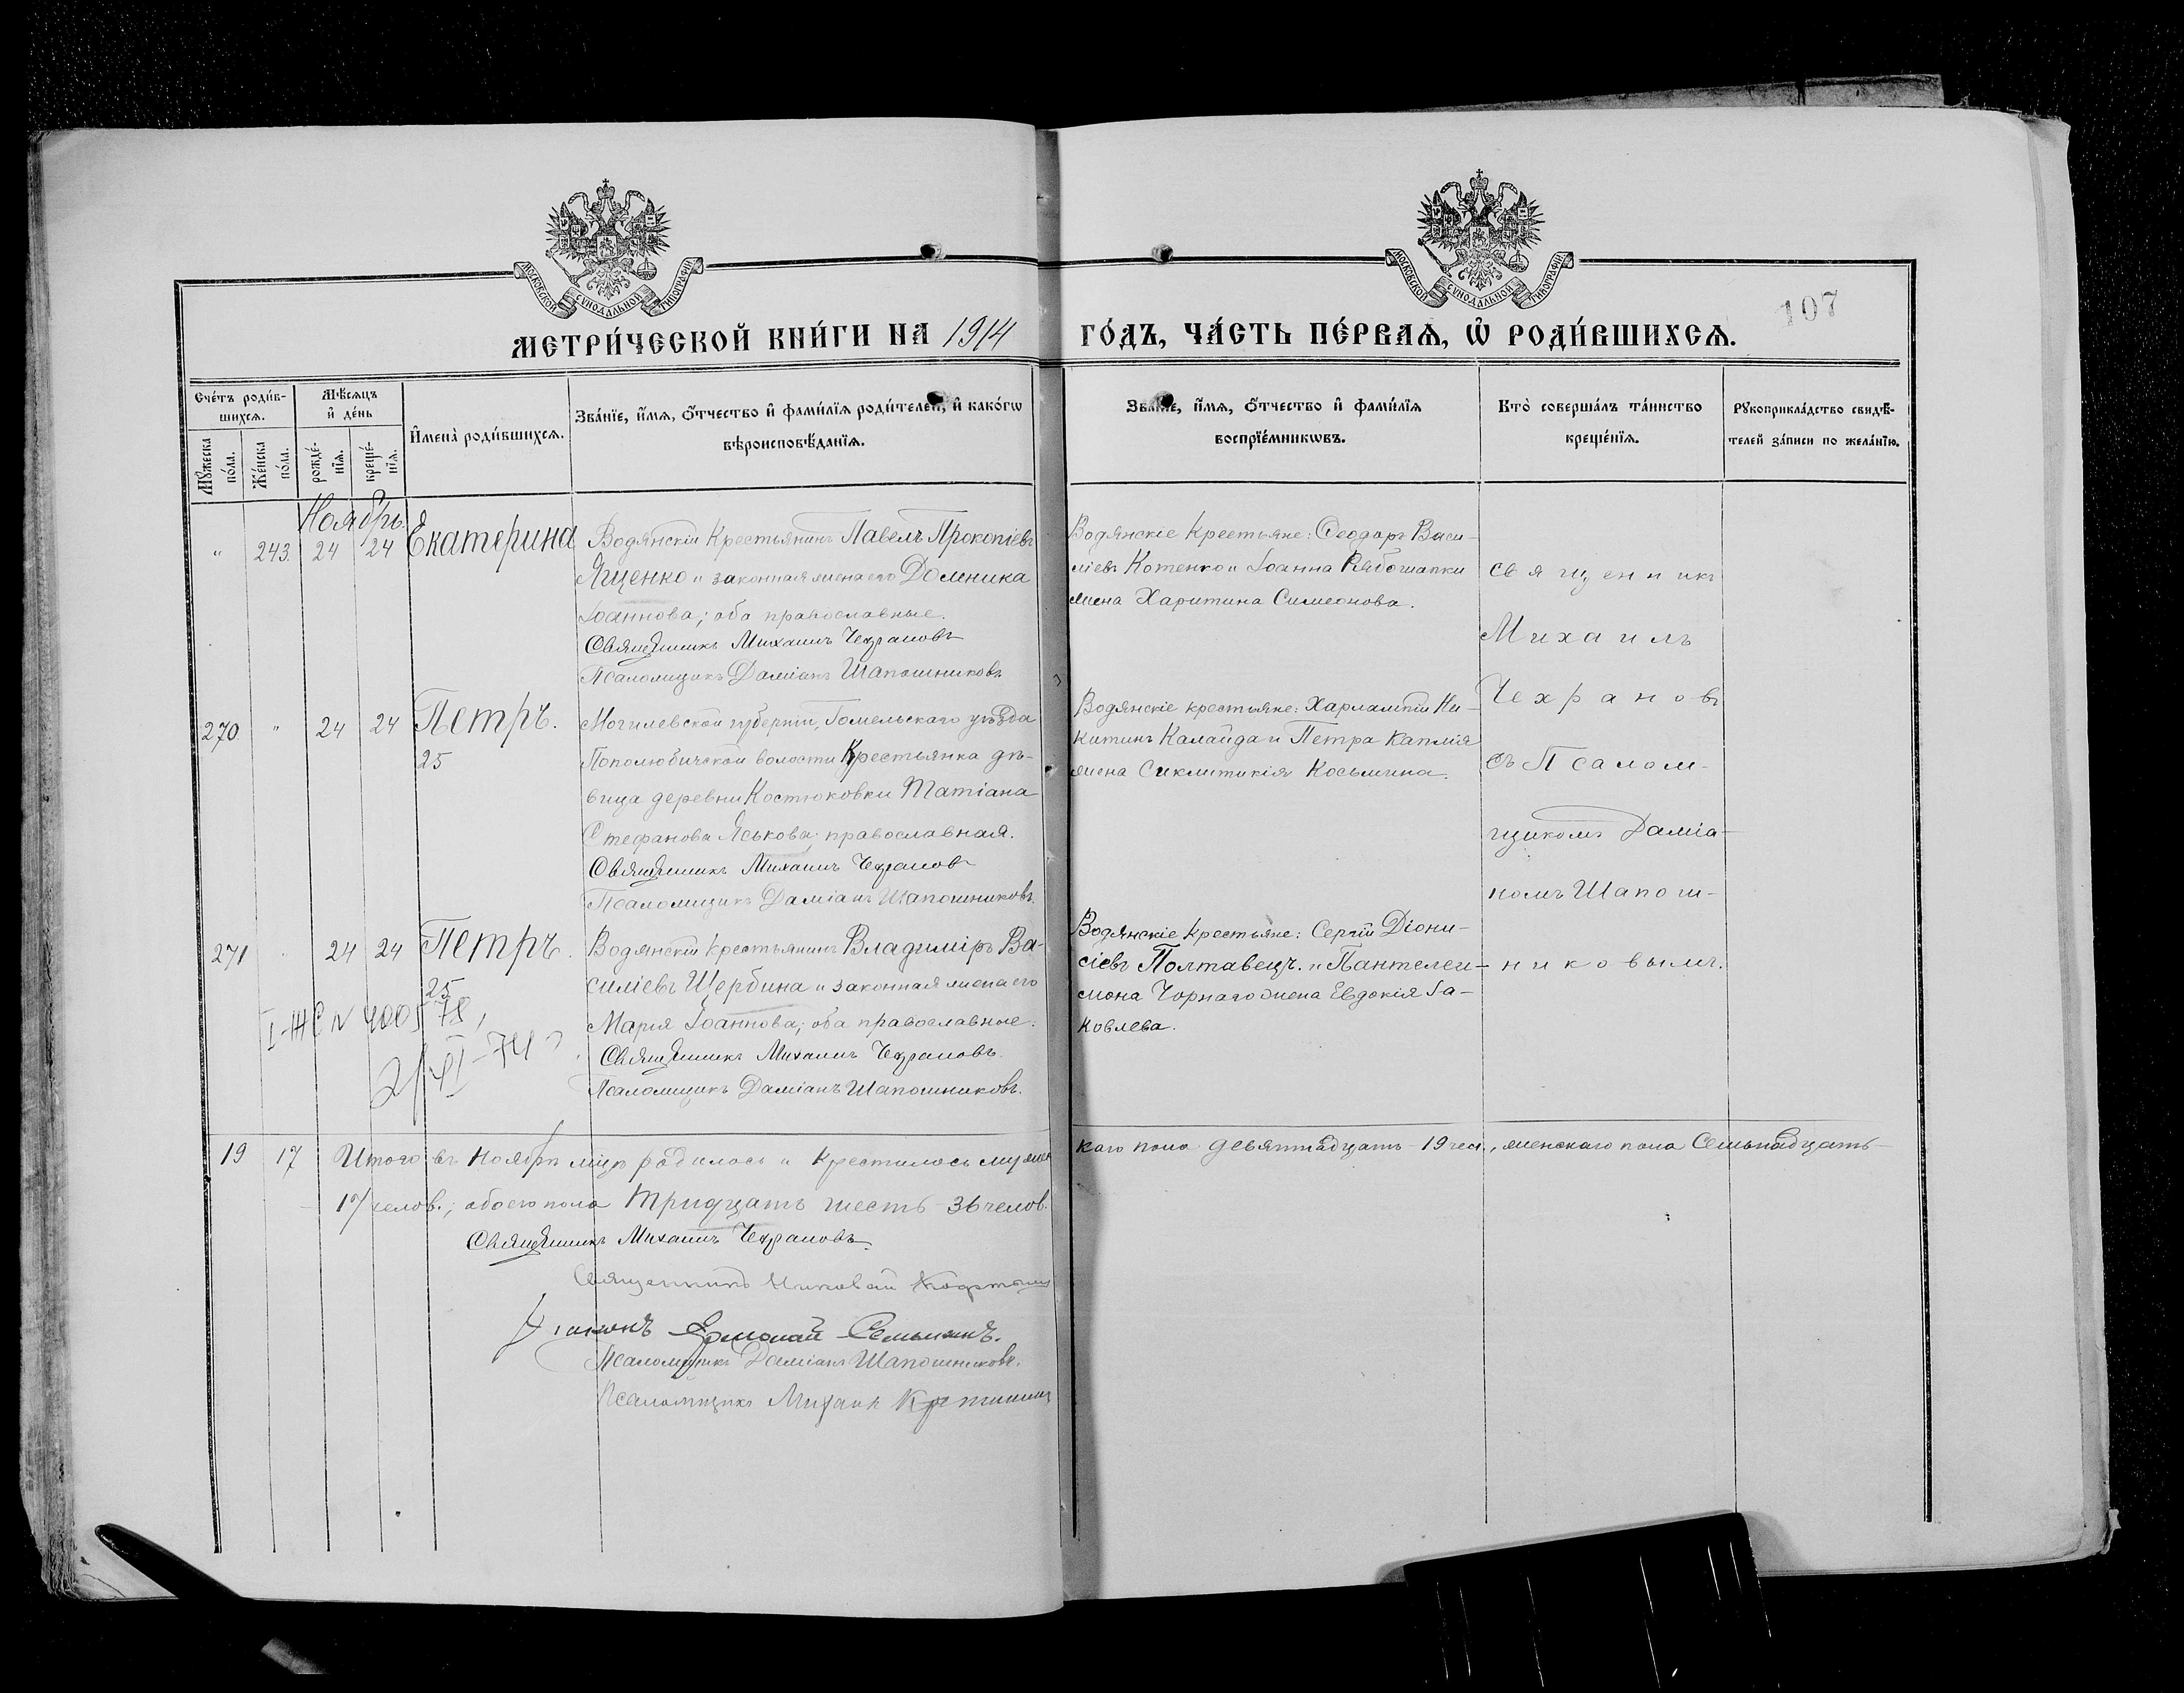 МОСКОВСКОЙ СѴНОДАЛЬНОЙ ТИПОГРАФІИ
МОСКОВСКОЙ СѴНОДАЛЬНОЙ ТИПОГРАФІИ
107
МЕТРИ́ЧЕСКОЙ КНИ́ГИ НА 1914 ГО́ДЪ, ЧА́СТЬ ПЕ́РВАѦ, Ѡ҆ РОДИ́ВШИХСѦ.
Сче́тъ роди́в-
шихсѧ.
Мꙋ́жеска
по́ла.
Же́нска
по́ла.
Мѣ́сѧцъ
и҆ де́нь
рожде́-
нїѧ.
креще́-
нїѧ.
И҆мена̀ роди́вшихсѧ.
Зва́нїе, и҆́мѧ, ѻ҆́тчество и҆ фами́лїѧ роди́телей, и҆ како́гѡ
вѣроисповѣ́данїѧ.
Зва́нїе, и҆́мѧ, ѻ҆́тчество и҆ фами́лїѧ
воспрїе́мникѡвъ.
Кто̀ соверша́лъ та́инство
креще́нїѧ.
Рꙋкоприкла́дство свидѣ́-
телей за́писи по жела́нїю.
Ноябрь.
" 243. 24 24 Екатерина
Водянскій Крестьянинъ Павелъ Прокопіевъ
Ященко и законная жена его Домника
Іоаннова; оба православные.
Священникъ Михаилъ Чехрановъ
Псаломщикъ Даміанъ Шапошниковъ
Водянскіе Крестьяне: Ѳеодоръ Васи-
ліевъ Котенко и Іоанна Рябошапки
жена Харитина Симеонова.
270 " 24 24 Петръ.
25
Могилевской губерніи, Гомельскаго уѣзда
волости Крестьянка дѣ-
вица деревни Костюковки Татіана
Стефанова Яськова; православная.
Священникъ Михаилъ Чехрановъ
Псаломщикъ Даміанъ Шапошниковъ.
Водянскіе крестьяне: Харлампій Ни-
китинъ Калайда и Петра Каплія
жена Сиклитикія Косьмина.
271 " 24 24 Петръ.
25
Водянскій крестьянинъ Владиміръ Ва-
силіевъ Щербина и законная жена его
Марія Іоаннова; оба православные.
Священникъ Михаилъ Чехрановъ.
Псаломщикъ Даміанъ Шапошниковъ.
Водянскіе Крестьяне: Сергій Діони-
сіевъ Полтавецъ. и Пантелеи-
мона Чорнаго жена Евдокія Іа-
ковлева.
Священникъ
Михаилъ
Чехрановъ
съ Псалом-
щикомъ Даміа-
номъ Шапош-
никовымъ.
19 17 Итого въ Ноябрѣ мцѣ родилось и крестилось мужес
каго пола девятнадцать 19 чел., женскаго пола Семьнадцать
17 челов.; обоего пола тридцать шесть - 36 челов.
Священникъ Михаилъ Чехрановъ.
Священникъ Николай
Діаконъ
Псаломщикъ Даміанъ Шапошниковъ.
Псаломщикъ Михаилъ